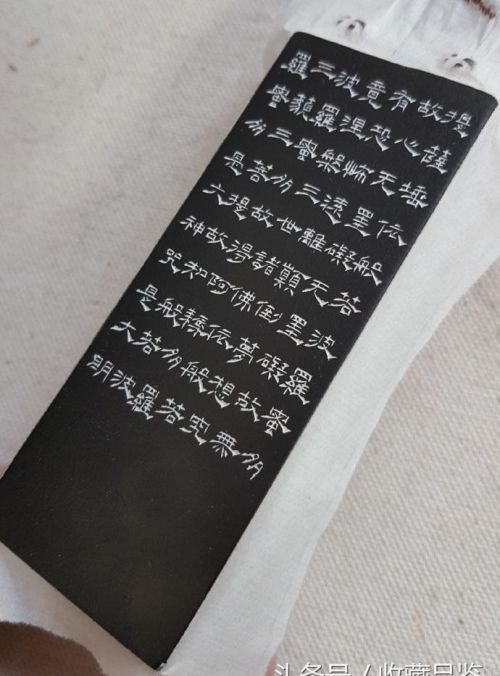 提薩埵依般若波羅蜜多
故心无罣礙无罣礙故無
有恐怖遠離顛倒夢想究
竟涅槃三世諸佛依般若
波羅蜜多故得阿耨多羅
三藐三菩提故知般若波
羅蜜多是大神咒是大明
头条号 / 收藏品鉴